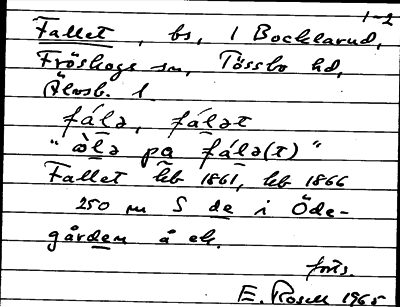 1-2
Fallet, bs, i Bocklarud,
Fröskogs sn, Tössbo hd,
Älvsb. l.
fálə, fálət
"òlə pa fálə(t)"
Fallet hb 1861, hb 1866
250 m S de i Öde-
gården å ek.
forts.
E. Rosell 1965